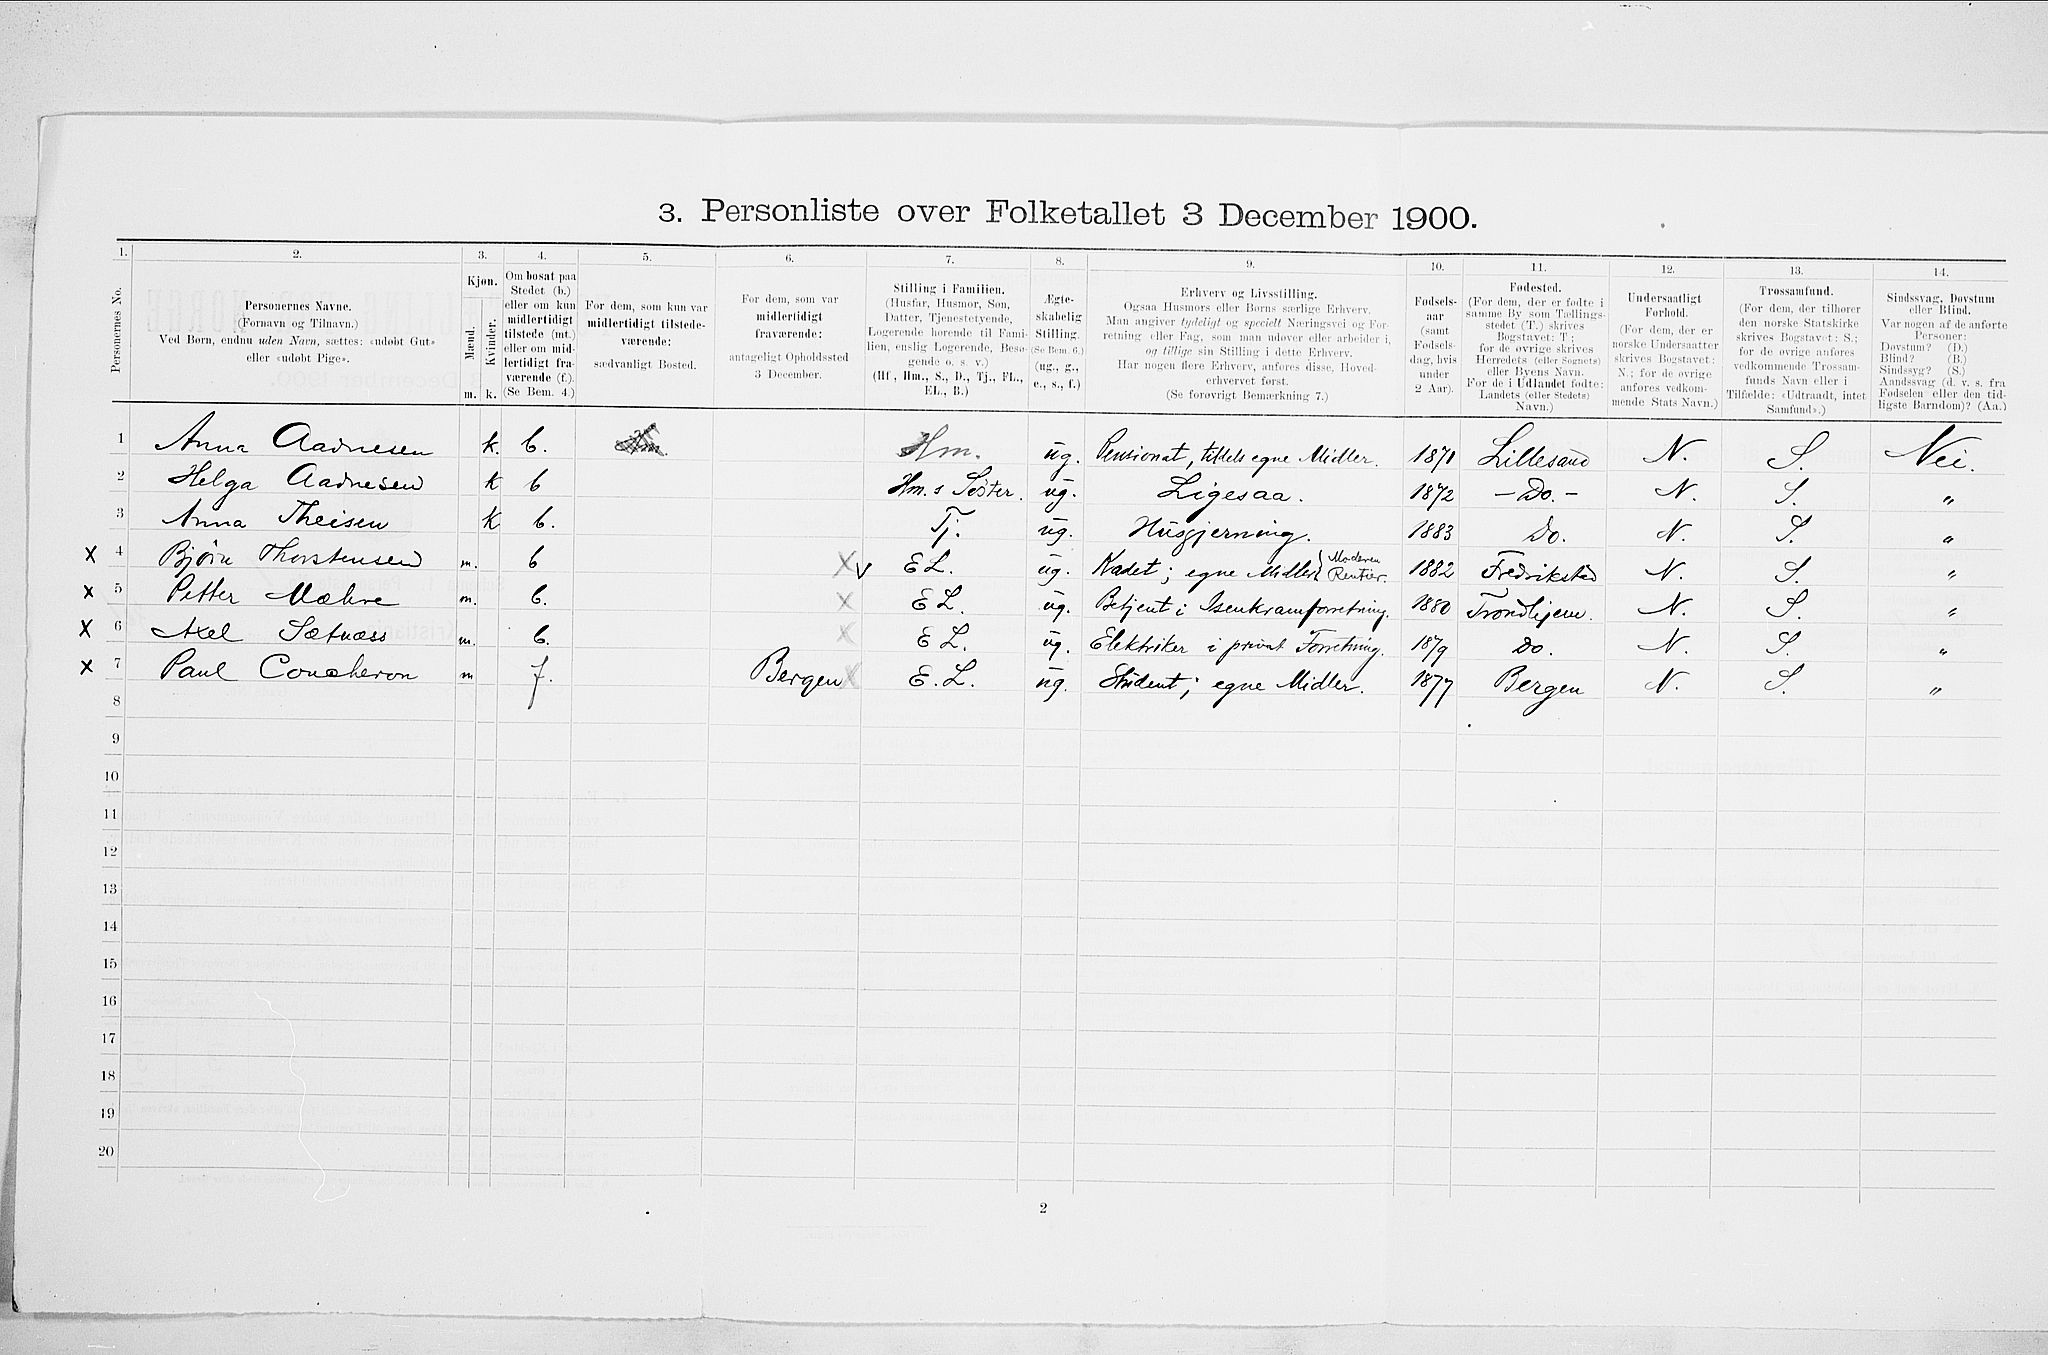 3. Personliste over Folketallet 3 December 1900.
1. 2. 3. 4. 5. 6. 7. 8. 9. 10. 11. 12. 13. 14.
Personernes No.
Personernes Navne.
(Fornavn og Tilnavn.)
Ved Børn, endnu uden Navn, sættes: «udøbt Gut»
eller «udøbt Pige».
Kjøn.
Mænd.
Kvinder.
m. k.
Om bosat paa
Stedet (b.)
eller om kun
midlertidigt
tilstede (mt.)
eller om mid-
lertidigt fra-
værende (f.).
(Se Bem. 4.)
For dem, som kun var
midlertidigt tilstede-
værende:
sædvanligt Bosted.
For dem, som var
midlertidigt
fraværende:
antageligt Opholdssted
3 December.
Stilling i Familien.
(Husfar, Husmor, Søn,
Datter, Tjenestetyende,
Logerende hørende til Fami-
lien, enslig Logerende, Besø-
gende o. s. v.)
(Hf., Hm., S., D., Tj., FL.,
EL., B.)
Ægte-
skabelig
Stilling.
(Se Bem. 6.)
(ug., g.,
e., s., f.)
Erhverv og Livsstilling.
Ogsaa Husmors eller Børns særlige Erhverv.
Man angiver tydeligt og specielt Næringsvei og For-
retning eller Fag, som man udøver eller arbeider i,
og tillige sin Stilling i dette Erhverv.
Har nogen flere Erhverv, anføres disse, Hoved-
erhvervet først.
(Se forøvrigt Bemærkning 7.)
Fødsels-
aar
(samt
Fødsels-
dag, hvis
under
2 Aar).
Fødested.
(For dem, der er fødte i
samme By som Tællings-
stedet (T.) skrives
Bogstavet: T;
for de øvrige skrives
Herredets (eller Sognets)
eller Byens Navn.
For de i Udlandet fødte:
Landets (eller Stedets)
Navn.)
Undersaatligt
Forhold.
(For dem, der er
norske Undersaatter
skrives Bogstavet:
N.; for de øvrige
anføres vedkom-
mende Stats Navn.)
Trossamfund.
(For dem, der tilhører
den norske Statskirke
skrives Bogstavet: S.;
for de øvrige anføres
vedkommende Trossam-
funds Navn eller i
Tilfælde: «Udtraadt, intet
Samfund».)
Sindssvag, Døvstum
eller Blind.
Var nogen af de anførte
Personer:
Døvstum? (D.)
Blind? (B.)
Sindssyg? (S.)
Aandssvag (d. v. s. fra
Fødselen eller den tid-
ligste Barndom)? (Aa.)
1 Anna Aadnesen k. b. Hm. ug. Pensionat, tildels egne Midler. 1871 Lillesand N. S. Nei.
2 Helga Aadnesen k b Hm.s Søster. ug. Ligesaa. 1872 – Do. – N. S. "
3 Anna Theisen k b. Tj. ug. Husgjerning. 1883 Do. N. S. "
X 4 Bjørn Thorstensen m. b X v EL. ug. Kadet; egne Midler (Moderen Rentier. 1882 Fredrikstad N. S. "
X 5 Petter Mæhre m. b. X EL. ug. Betjent i Isenkramforretning. 1880 Trondhjem. N. S. "
X 6 Axel Sætnæss m. b. X EL. ug. Elektriker i privat Forretning. 1879 Do. N. S. "
X 7 Paul Coucheron m f. Bergen X E.L. ug. Student; egne Midler. 1877 Bergen N. S. "
8
9
10
11
12
13
14
15
16
17
18
19
20
2